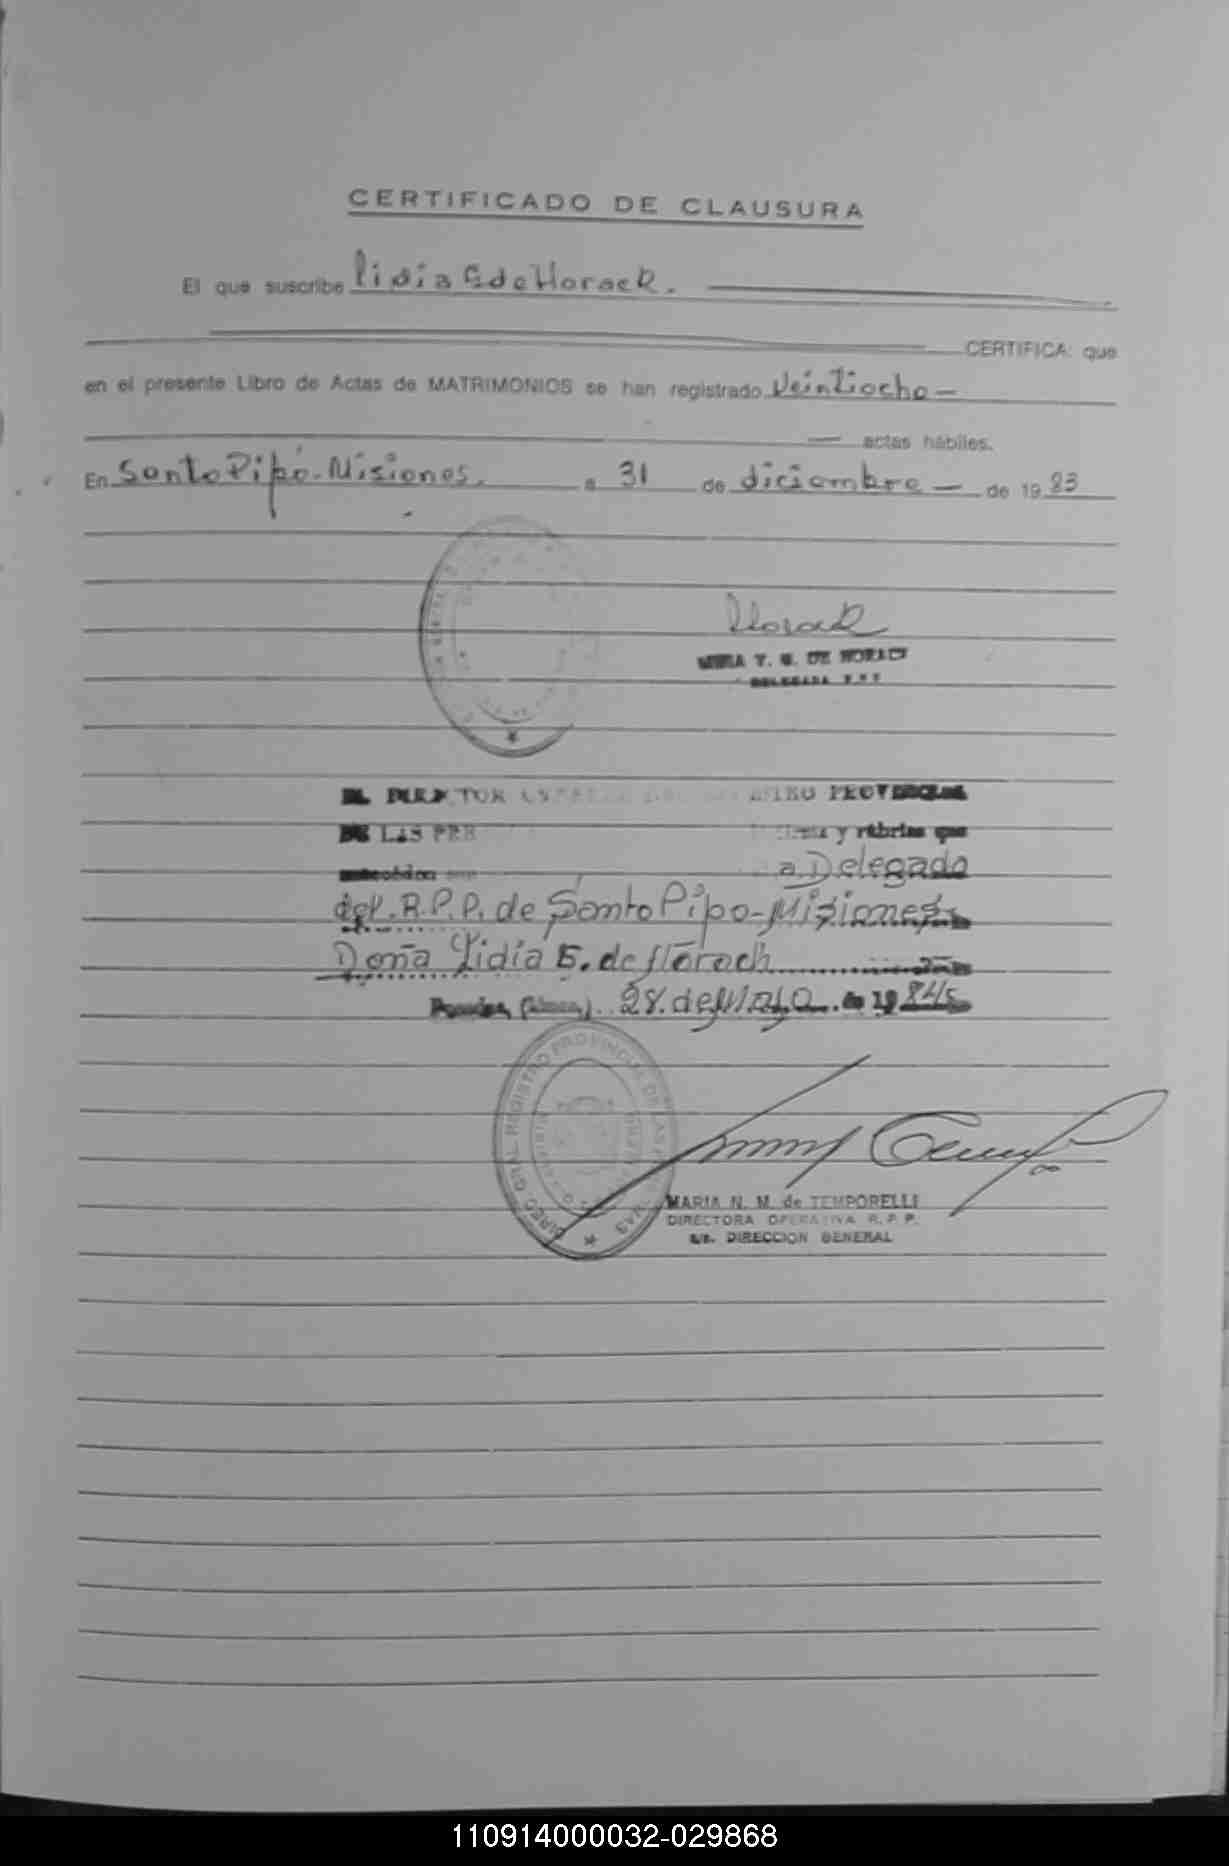 CERTIFICADO DE CLAUSURA
El que suscribe Lidia E de Horack.
CERTIFICA: que
en el presente Libro de Actas de MATRIMONIOS se han registrado Veintiocho —
— actas hábiles.
En Santo Pipó - Misiones. a 31 de diciembre — de 19 83
Horack
DE HORACK
DELEGADA
EL DIRECTOR PROVINCIAL
DE LAS y rubrica que
a Delegada
del. R.P.P. de Santo Pipó - Misiones
Doña Lidia E. de Horach
Posadas, 28. de Mayo. de 1984
DIREC. GRAL. REGISTRO PROVINCIAL DE LAS
MARIA N. M. de TEMPORELLI
DIRECTORA OPERATIVA R. P. P.
DIRECCION GENERAL
110914000032-029868